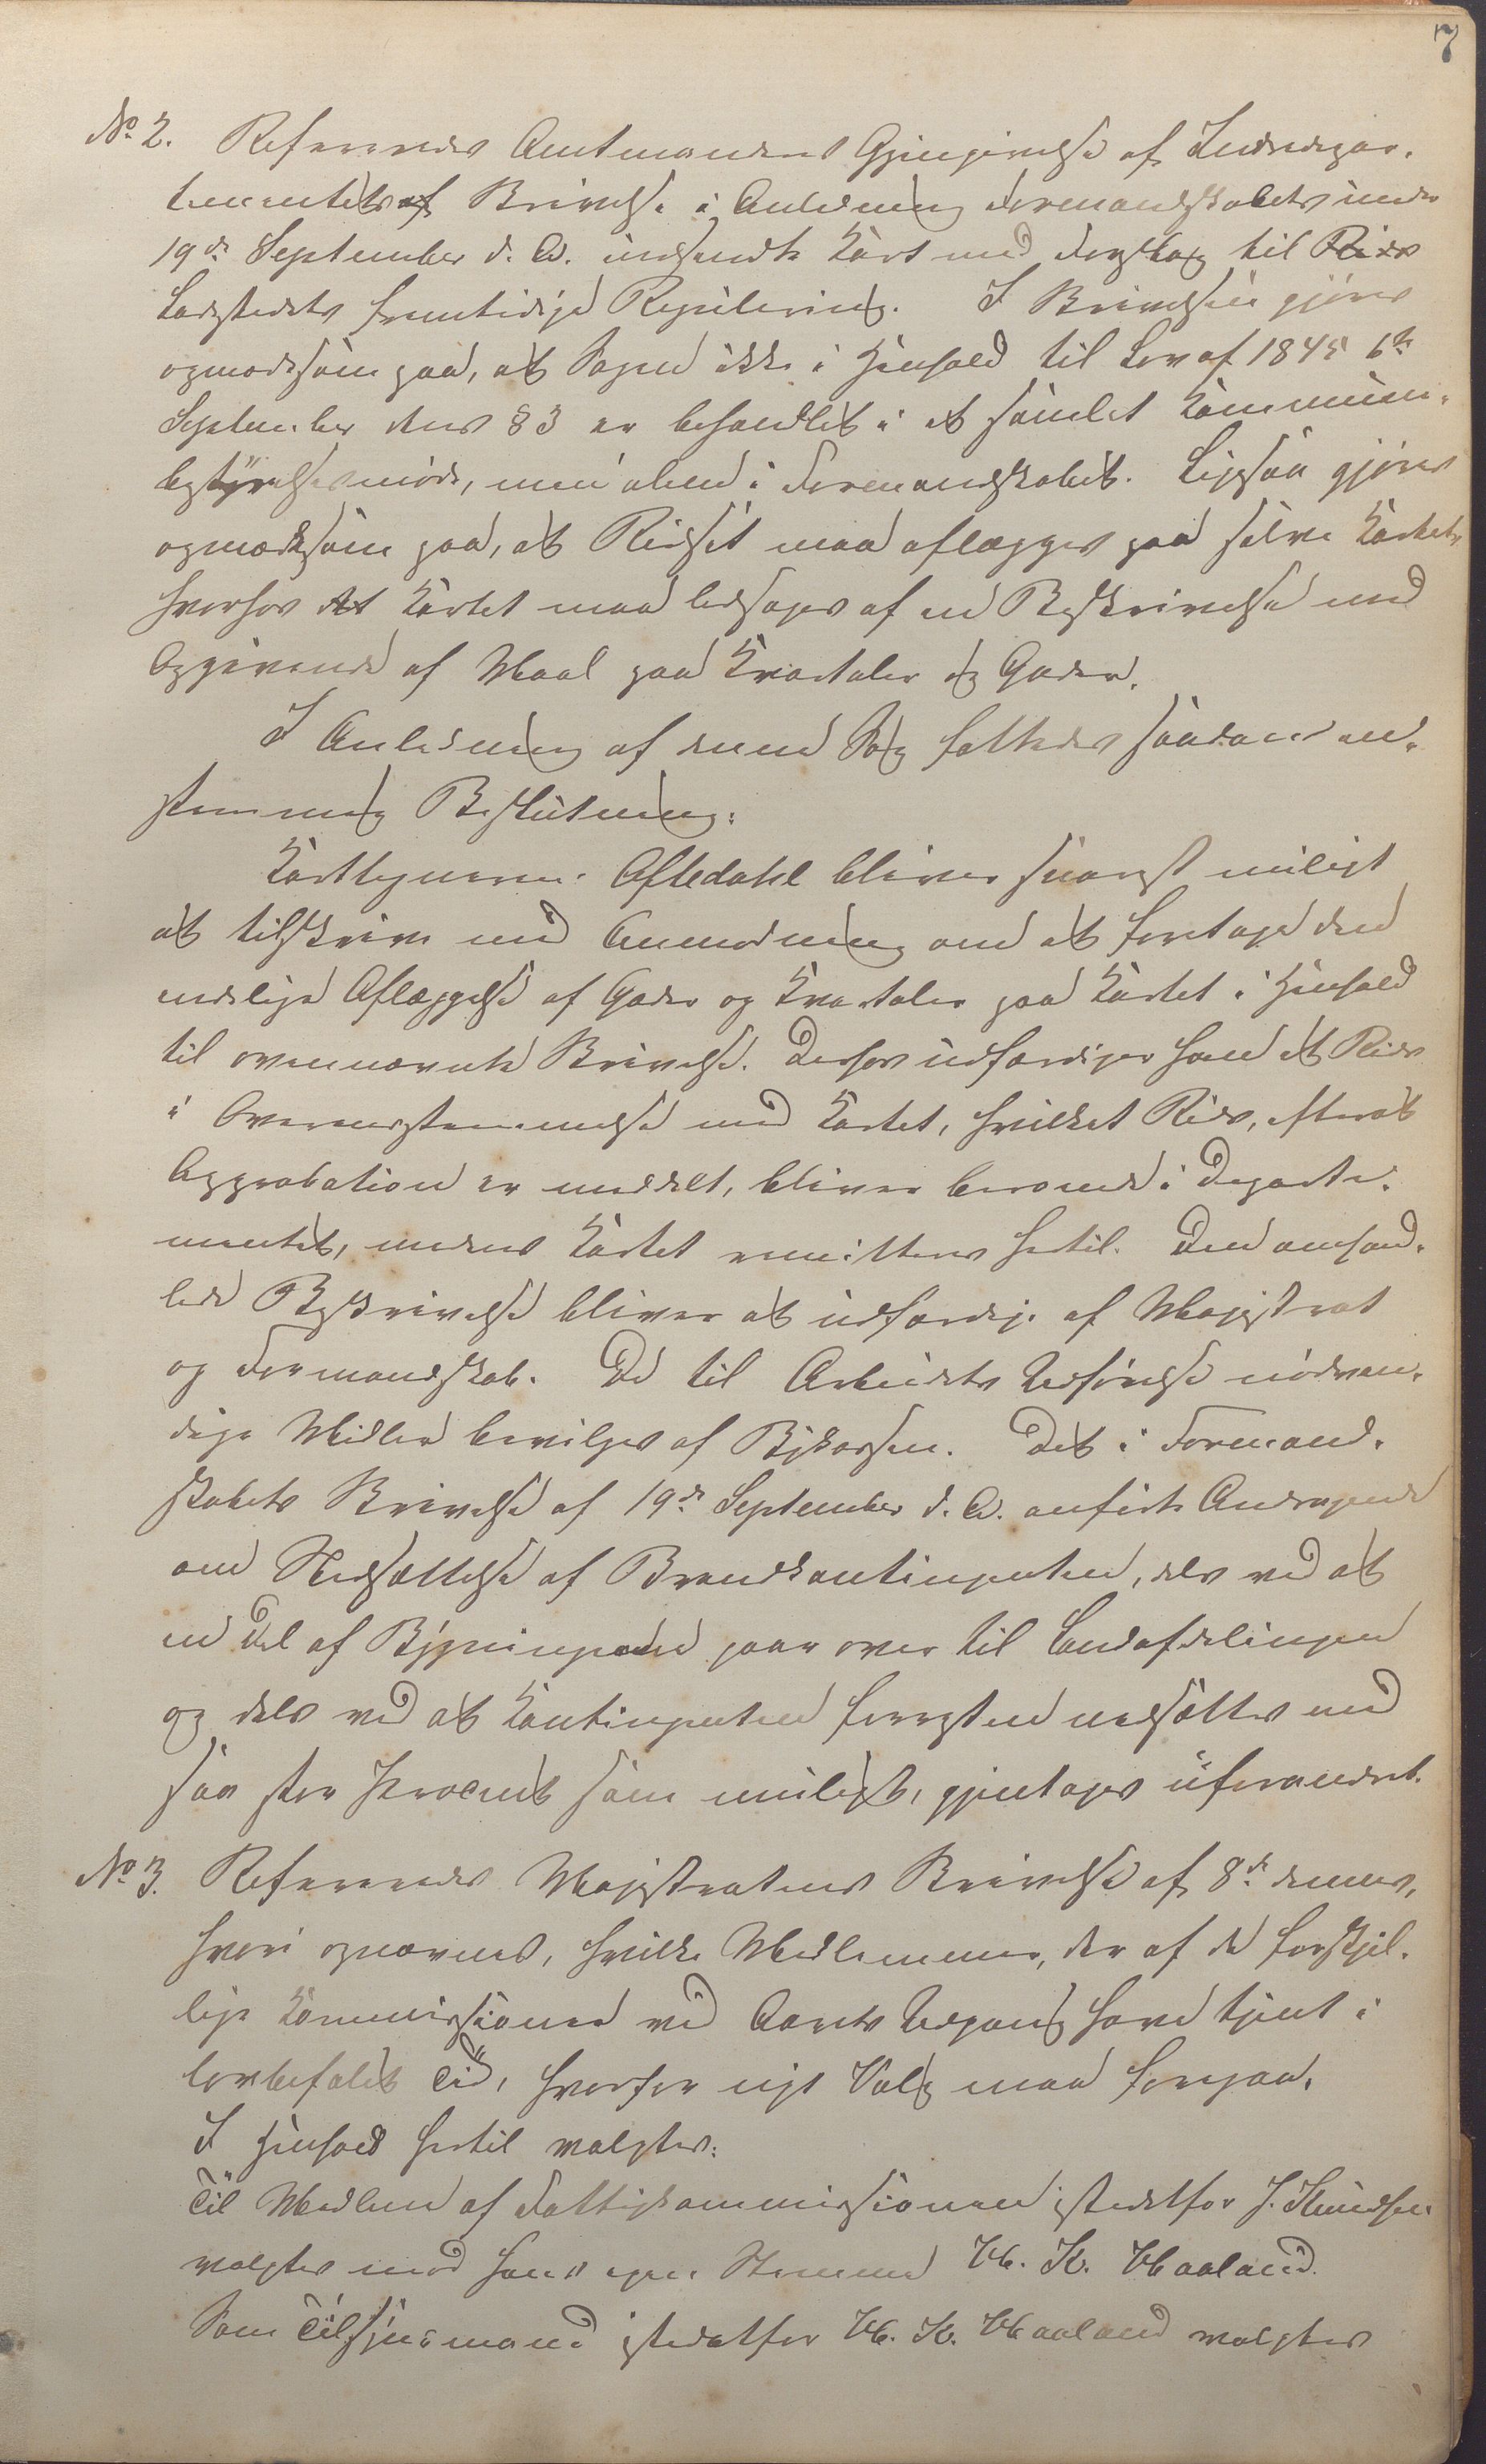 7
No 2. Refereredes Amtmandens Gjengivelse af Indredepar-
tementets af Skrivelse i Anledning Formandskabets under
19de September d. A. indsendte Kart med Forslag til Rids
Ladestedets fremtidige Regulering. I Skrivelsen gjøres
opmærksom paa, at Sagen ikke i Henhold til Lov af 1845 6te
September dens § 3 er behandlet i et samlet Kommune-
bestyrelsesmøde, men alene i Formandskabet. Ligesaa gjøres
opmærksom paa, at Ridset maa aflægges paa selve Kartet,
hvorhos det Kartet maa ledsages af en Beskrivelse med
Opgivende af Maal paa Kvartaler og Gader.
I Anledning af denne Sag fattedes saadan en-
stemmig Beslutning:
Karttegneren Aftedahl bliver snarest muligt
at tilskrive med Anmodning om at foretage den
endelige Aflæggelse af Gader og Kvartaler paa Kartet i Henhold
til ovennævnte Skrivelse. Derhos udfærdiger han et Rids
i Overensstemmelse med Kartet, hvilket Rids, efterat
Approbation er meddelt, bliver beroende i Departe-
mentet, medens Kartet remitteres hertil. Den omhand-
lede Beskrivelse bliver at udfærdige af Magistrat
og Formandskab. De til Arbeidets Udførelse nødven-
dige Midler bevilges af Bykassen. Det i Formand-
skabets Skrivelse af 19de September d. A. anførte Andragende
om Nedsættelse af Brandkontingenten, dels ved at
en Del af Bygningerne gaar over til Landafdelingen
og dels ved at Kontingenten forresten nedsættes med
saa stor Procent som muligt, gjentages uforandret.
No 3. Refereredes Magistratens Skrivelse af 8de dennes,
hvori opnævnes, hvilke Medlemmer, der af de forskjel-
lige Kommissioner ved Aarets Udgang have tjent i
lovbefalet Tid, hvorfor nyt Valg maa foregaa.
I Henhold hertil valgtes:
Til Medlem af Fattigkommissionen istedetfor J. Knudsen
valgtes mod hans egen Stemme M. K. Maaland.
Som Tilsynsmand istedetfor M. K. Maaland valgtes